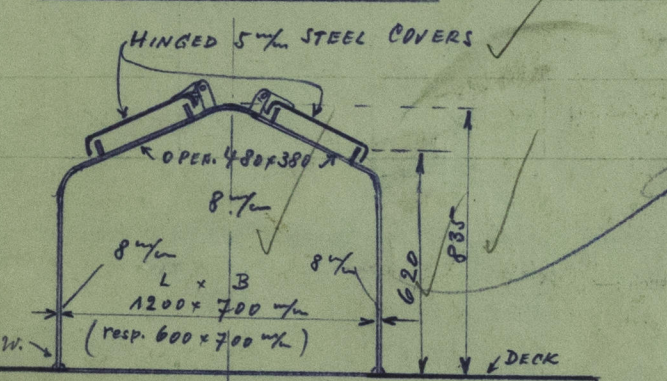 HINGED 5 m/m STEEL COVERS
OPEN. 480x380
8 m/m
8 m/m
8 m/m
L x B
1200 x 700 m/m
(resp. 600 x 700 m/m)
620
835
W.
DECK